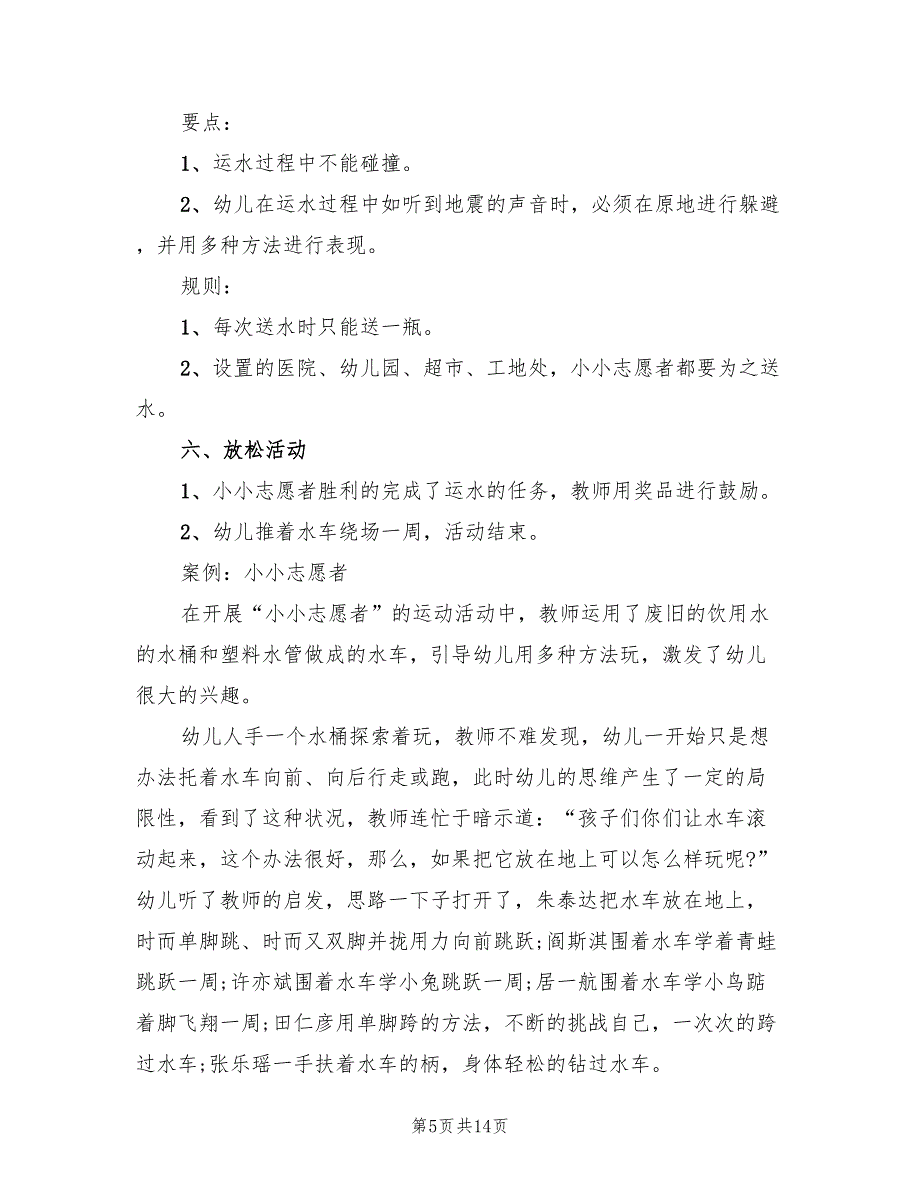 要点：
1、运水过程中不能碰撞。
2、幼儿在运水过程中如听到地震的声音时，必须在原地进行躲避
，并用多种方法进行表现。
规则：
1、每次送水时只能送一瓶。
2、设置的医院、幼儿园、超市、工地处，小小志愿者都要为之送
水。
六、放松活动
1、小小志愿者胜利的完成了运水的任务，教师用奖品进行鼓励。
2、幼儿推着水车绕场一周，活动结束。
案例：小小志愿者
在开展“小小志愿者”的运动活动中，教师运用了废旧的饮用水
的水桶和塑料水管做成的水车，引导幼儿用多种方法玩，激发了幼儿
很大的兴趣。
幼儿人手一个水桶探索着玩，教师不难发现，幼儿一开始只是想
办法托着水车向前、向后行走或跑，此时幼儿的思维产生了一定的局
限性，看到了这种状况，教师连忙于暗示道：“孩子们你们让水车滚
动起来，这个办法很好，那么，如果把它放在地上可以怎么样玩呢?”
幼儿听了教师的启发，思路一下子打开了，朱泰达把水车放在地上，
时而单脚跳、时而又双脚并拢用力向前跳跃;阎斯淇围着水车学着青蛙
跳跃一周;许亦斌围着水车学小兔跳跃一周;居一航围着水车学小鸟踮
着脚飞翔一周;田仁彦用单脚跨的方法，不断的挑战自己，一次次的跨
过水车;张乐瑶一手扶着水车的柄，身体轻松的钻过水车。
第5页共14页